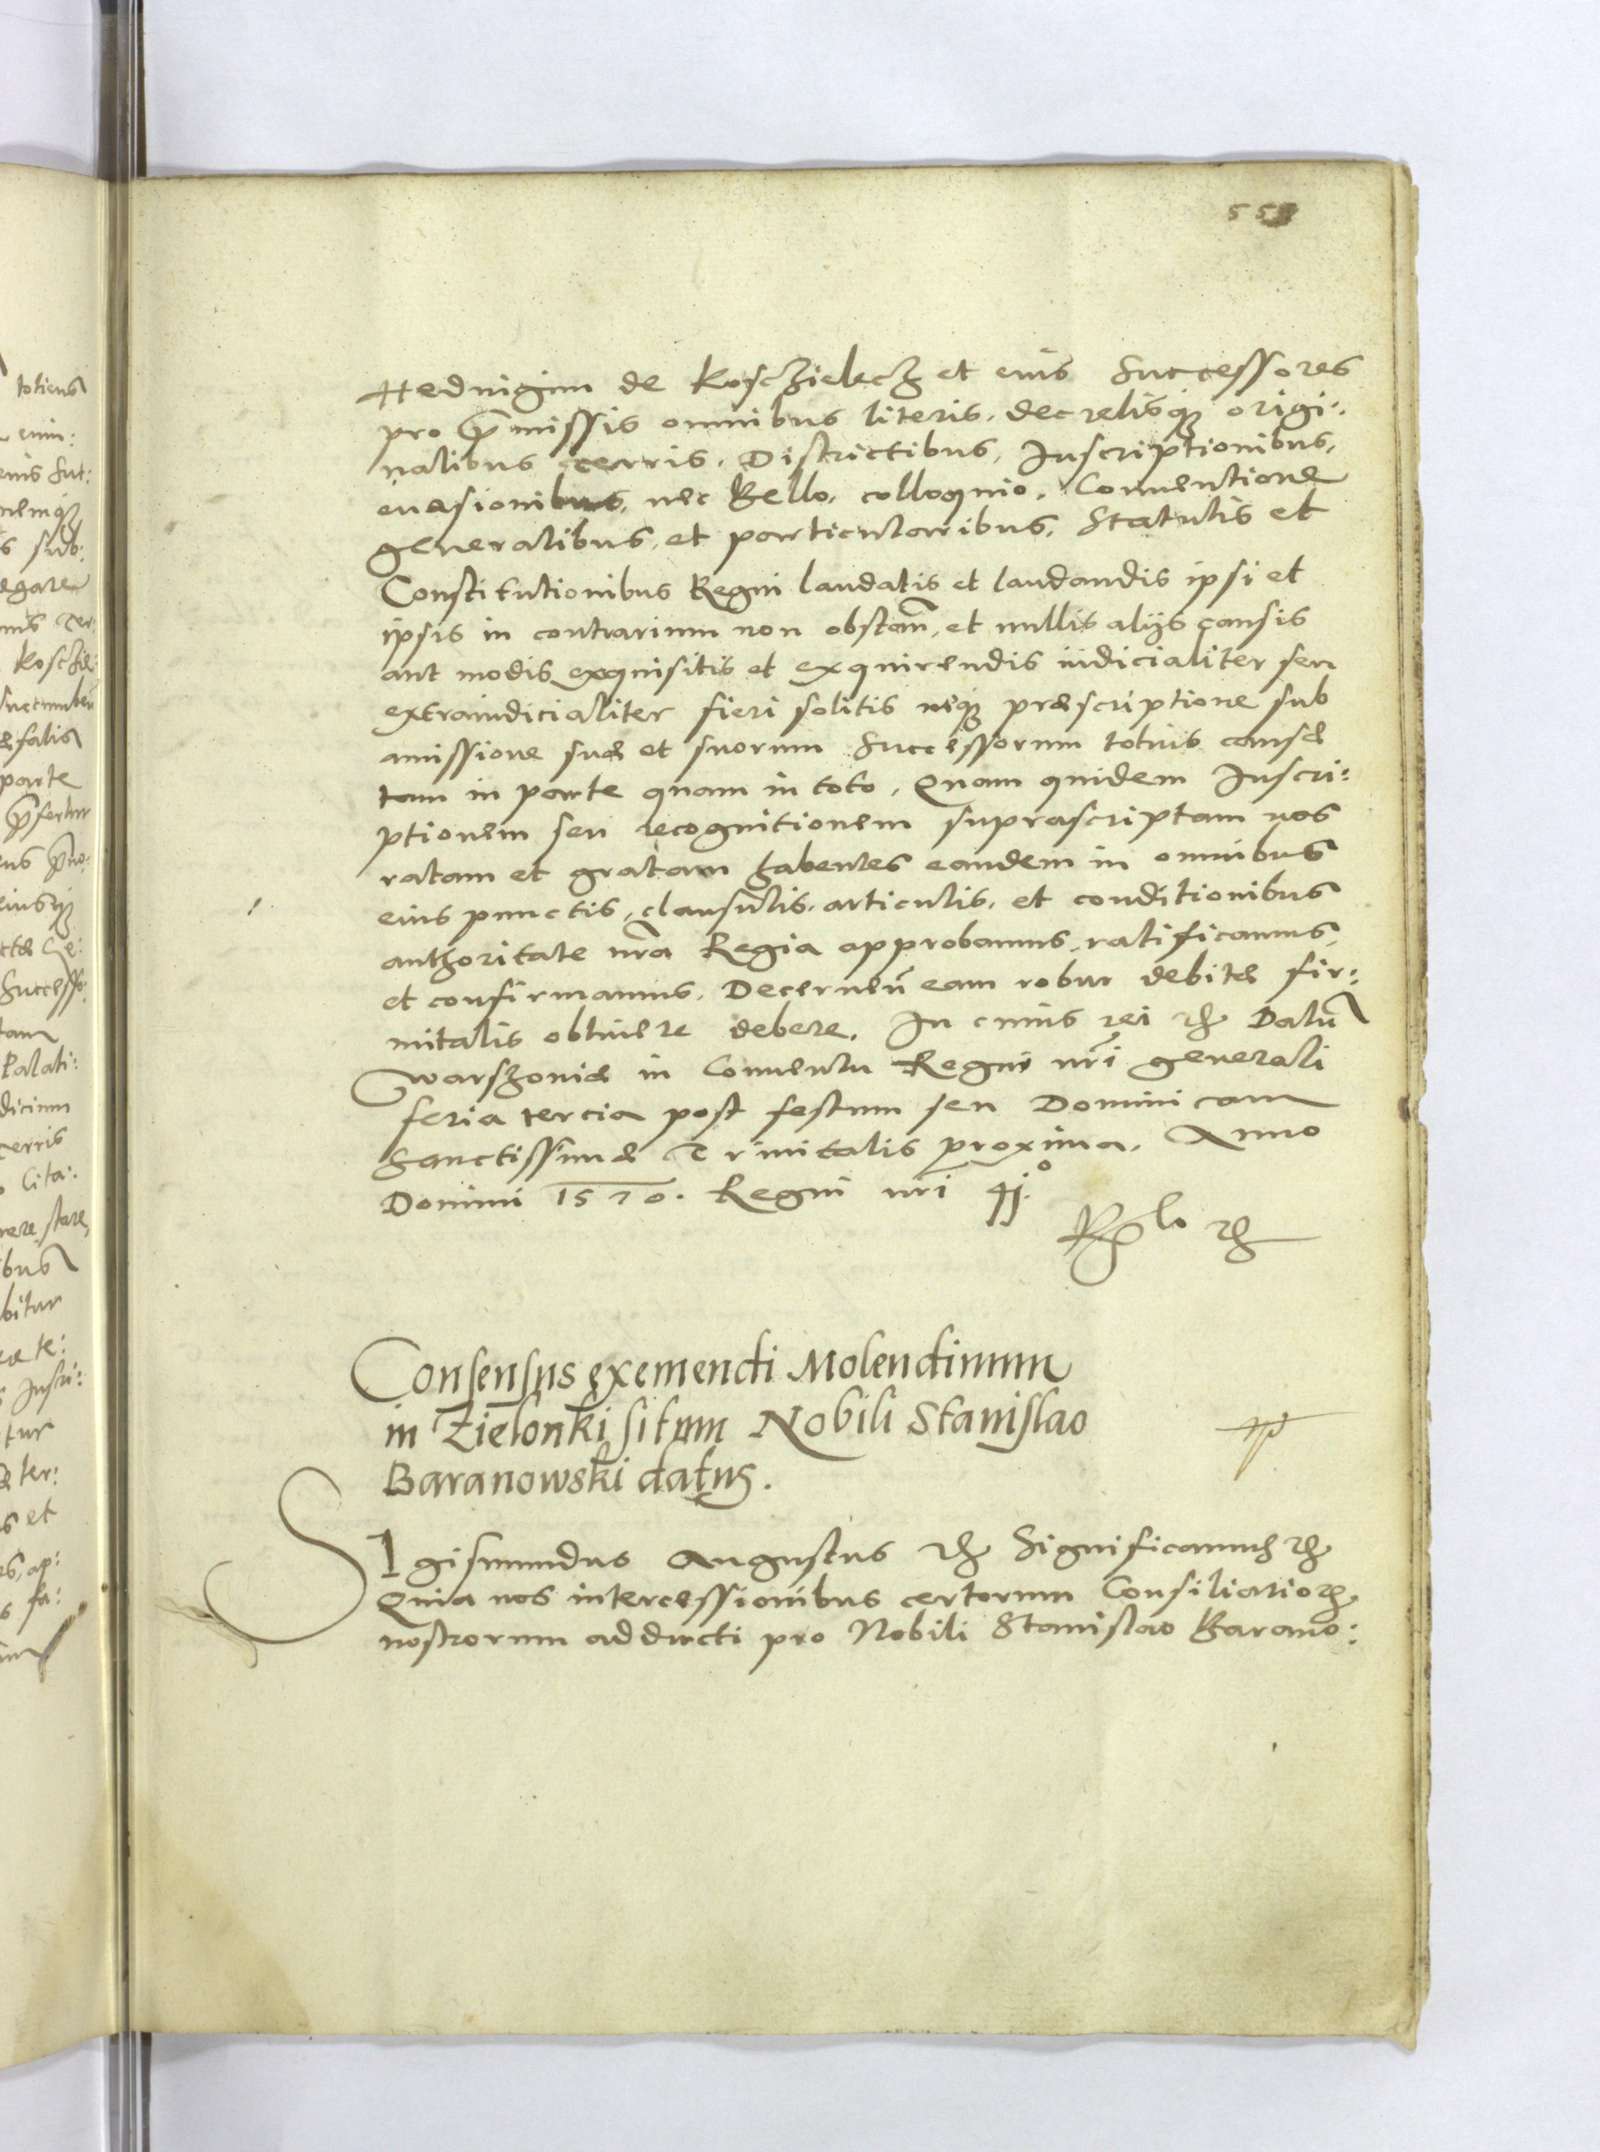 Heduigim de Koschielech et eius Successores
pro p̄missis omnibus literis. decretisq́ȝ origi:
nalibus terris. Districtibus, Inscriptionibus,
euasionibus, nec Bello. colloquio. Conuentione
generalibus, et particularibus. Statutis et
Constitutionibus Regni laudatis et laudandis ipsi et
ipsis in contrarium non obstan̄, et nullis alijs causis
aut modis exquisitis et exquirendis iudicialiter seu
extraiudicialiter fieri solitis neqȝ præscriptione sub
amissione suæ et suorum Successorum totius causæ
tam in parte quam in toto. Quam quidem Inscri:
ptionem seu recognitionem suprascriptam nos
ratam et gratam habentes eandem in omnibus
eius punctis, clausulis. articulis. et conditionibus
authoritate nr̄a Regia approbamus, ratificamus,
et confirmamus. Decernen̄ eam robur debitæ fir:
mitatis obtinere debere. In cuius rei etc. Datum̄
Warschouiæ in Conuentu Regni nr̄i generali
feria tercia post festum seu Dominicam
Sanctissimæ Trinitatis proxima. Anno
Domini 1570. Regni nr̄i 41.º
Consensus exemendi Molendinum
in Zielonki situm Nobili Stanislao
Baranowski datus.
SIgismundus Augustus etc. Significamus etc.
Quia nos intercessionibus certorum Consiliarioꝝ
nostrorum adducti pro Nobili Stanislao Barano: